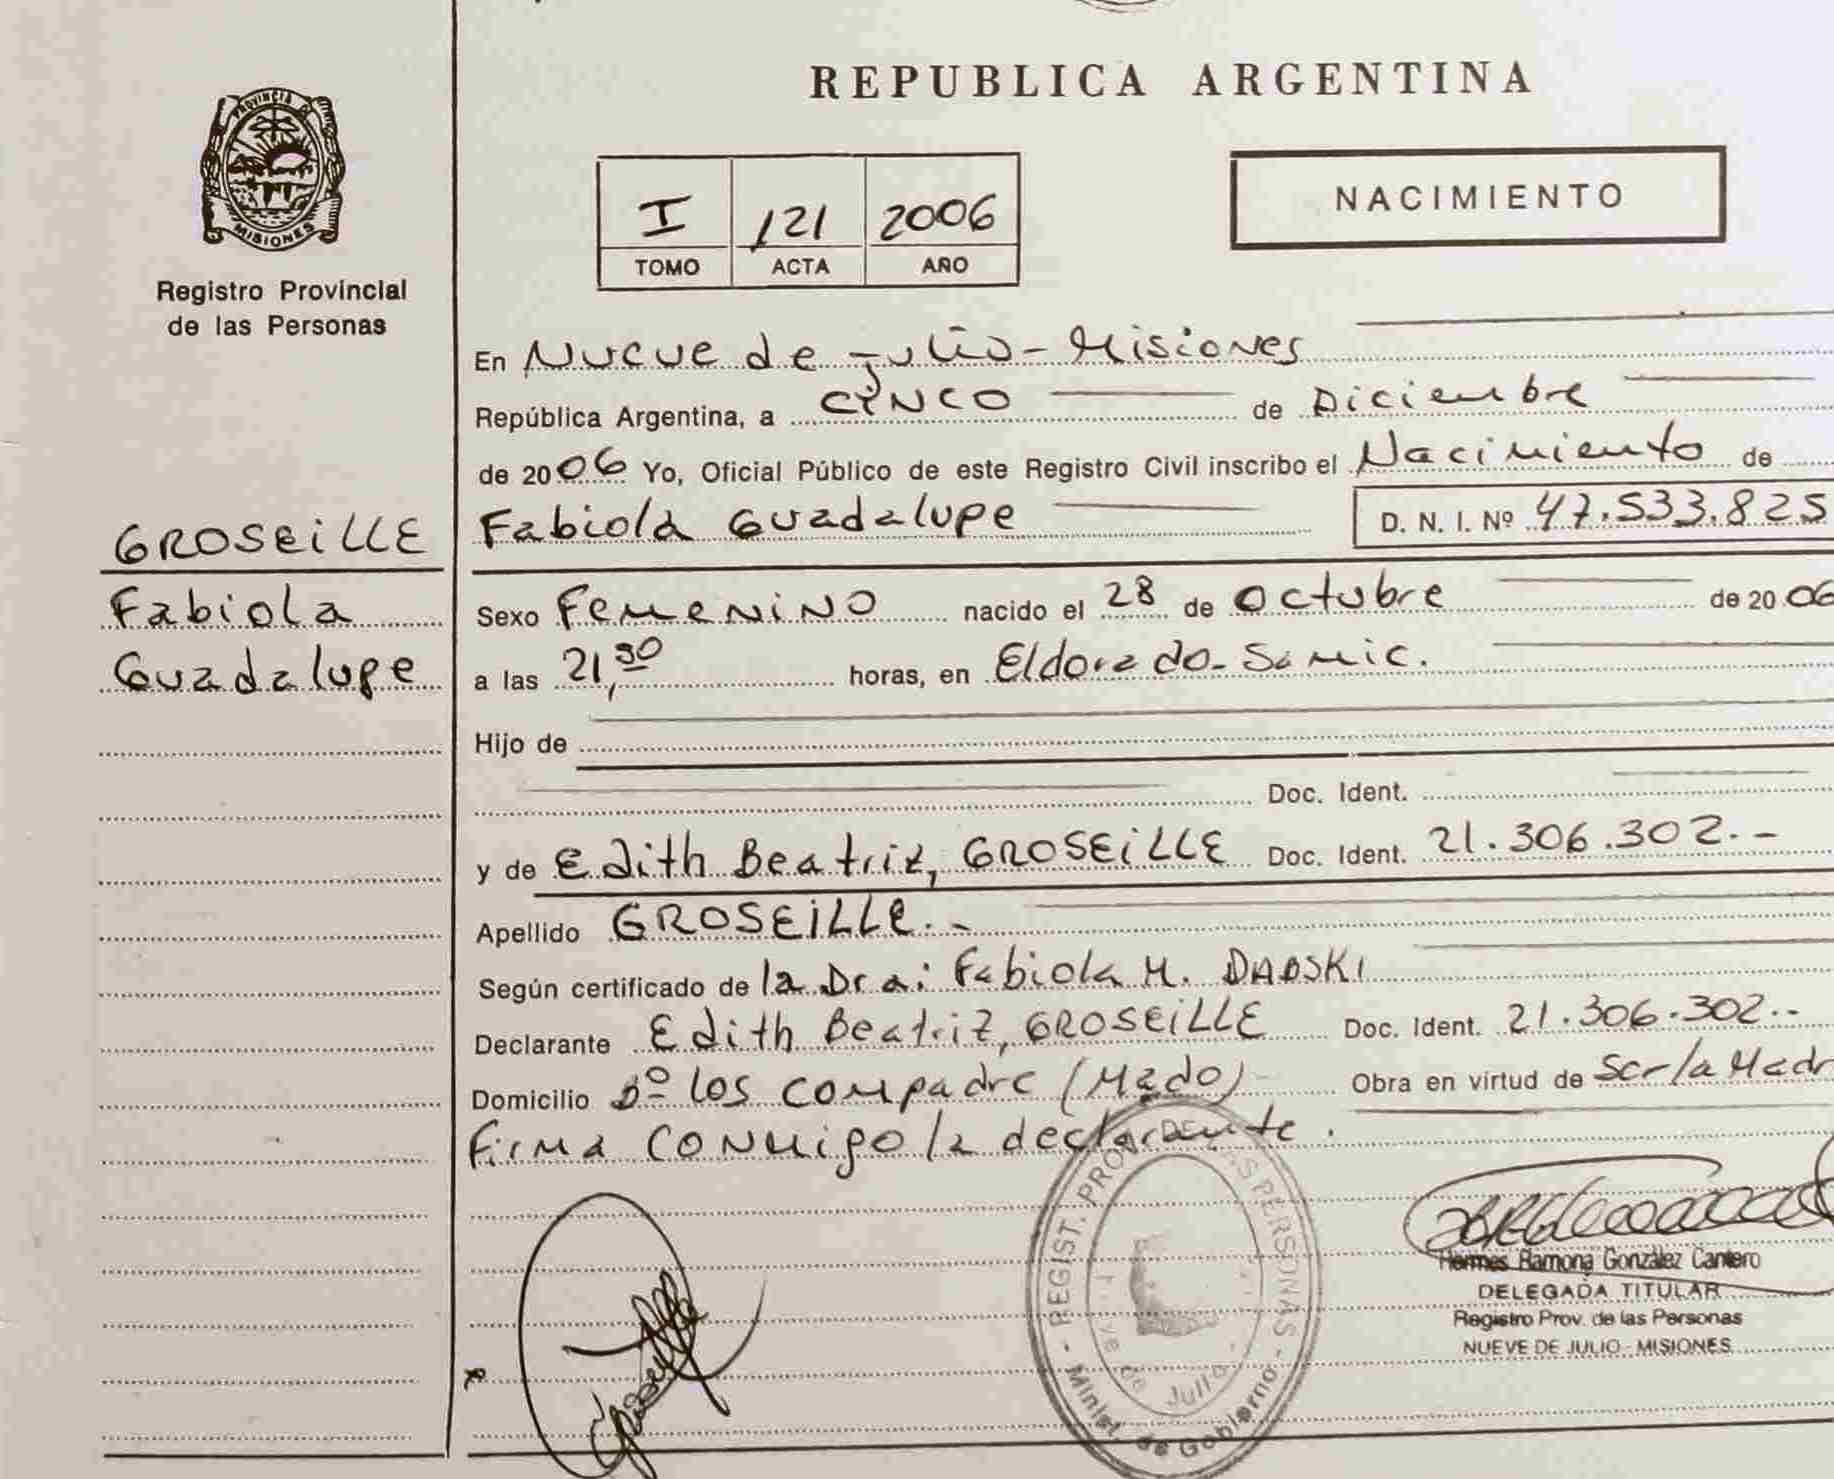 REPUBLICA ARGENTINA
PROVINCIA DE
MISIONES
Registro Provincial
de las Personas
I 121 2006
TOMO ACTA AÑO
NACIMIENTO
En Nueve de Julio - Misiones
República Argentina, a CINCO de Diciembre
de 2006 Yo, Oficial Público de este Registro Civil inscribo el Nacimiento de
GROSEILLE
Fabiola
Guadalupe
Fabiola Guadalupe D. N. I. Nº 47.533.825
Sexo Femenino nacido el 28 de Octubre de 2006
a las 21,30 horas, en Eldorado - Samic.
Hijo de
Doc. Ident.
y de Edith Beatriz, GROSEILLE Doc. Ident. 21.306.302.-
Apellido GROSEILLE.-
Según certificado de la Dra: Fabiola M. DABSKI
Declarante Edith Beatriz, GROSEILLE Doc. Ident. 21.306.302.-
Domicilio Bº los compadre (Mado) Obra en virtud de Ser la Madr
Firma conmigo la declarante.
REGIST. PROV. DE LAS PERSONAS
Minist. de Gobierno
Nueve de Julio
Hermes Ramona González Cantero
DELEGADA TITULAR
Registro Prov. de las Personas
NUEVE DE JULIO - MISIONES